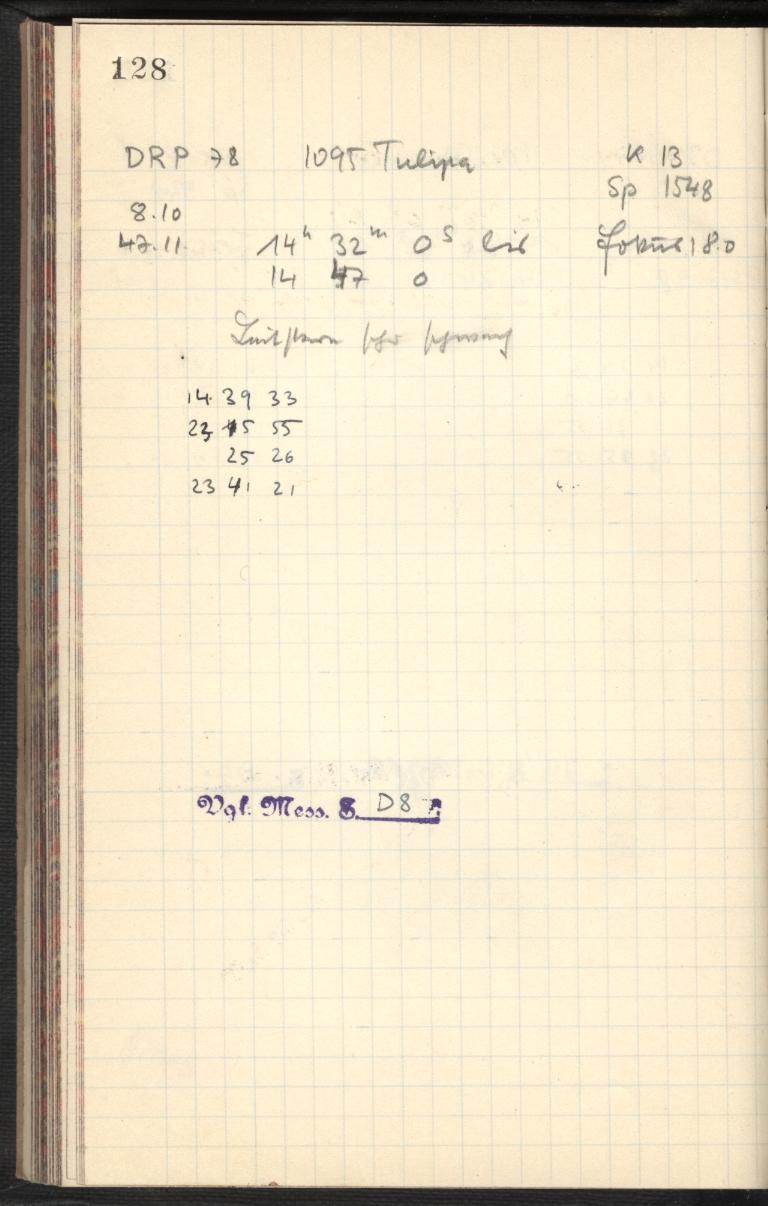 128
DRP 78 1095 Tulipa K 13
Sp 1548
8.10
47.11. 14h 32m 0s bis Fokus 18.0
14 47 0
Leitstern sehr schwach
14 39 33
23 45 55
25 26
23 41 21
Vgl. Mess. S. D8